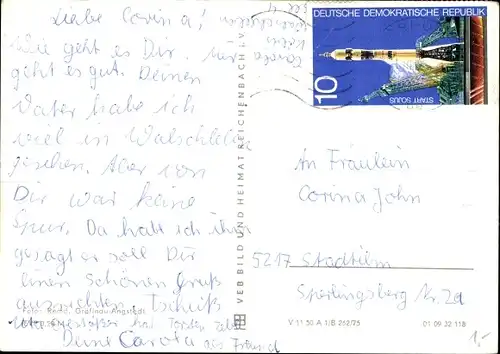 Liebe Corina!
Wie geht es Dir, mir
geht es gut. Deinen
Vater habe ich
viel in Walschleben
gesehen. Aber von
Dir war keine
Spur. Da habe ich ihm
gesagt er soll Dir
einen schönen Gruß
ausrichten. Tschüß
hat Torsten
Deine Carola als Freund
Foto: Gräfinau-Angstedt
VEB BILD UND HEIMAT REICHENBACH I. V.
V 11 50 A 1/B 252/75 01 09 32 118
DEUTSCHE DEMOKRATISCHE REPUBLIK
10
START SOJUS
Carola
An Fräulein
Corina John
5217 Stadtilm
Sperlingsberg Nr. 2a
1,-